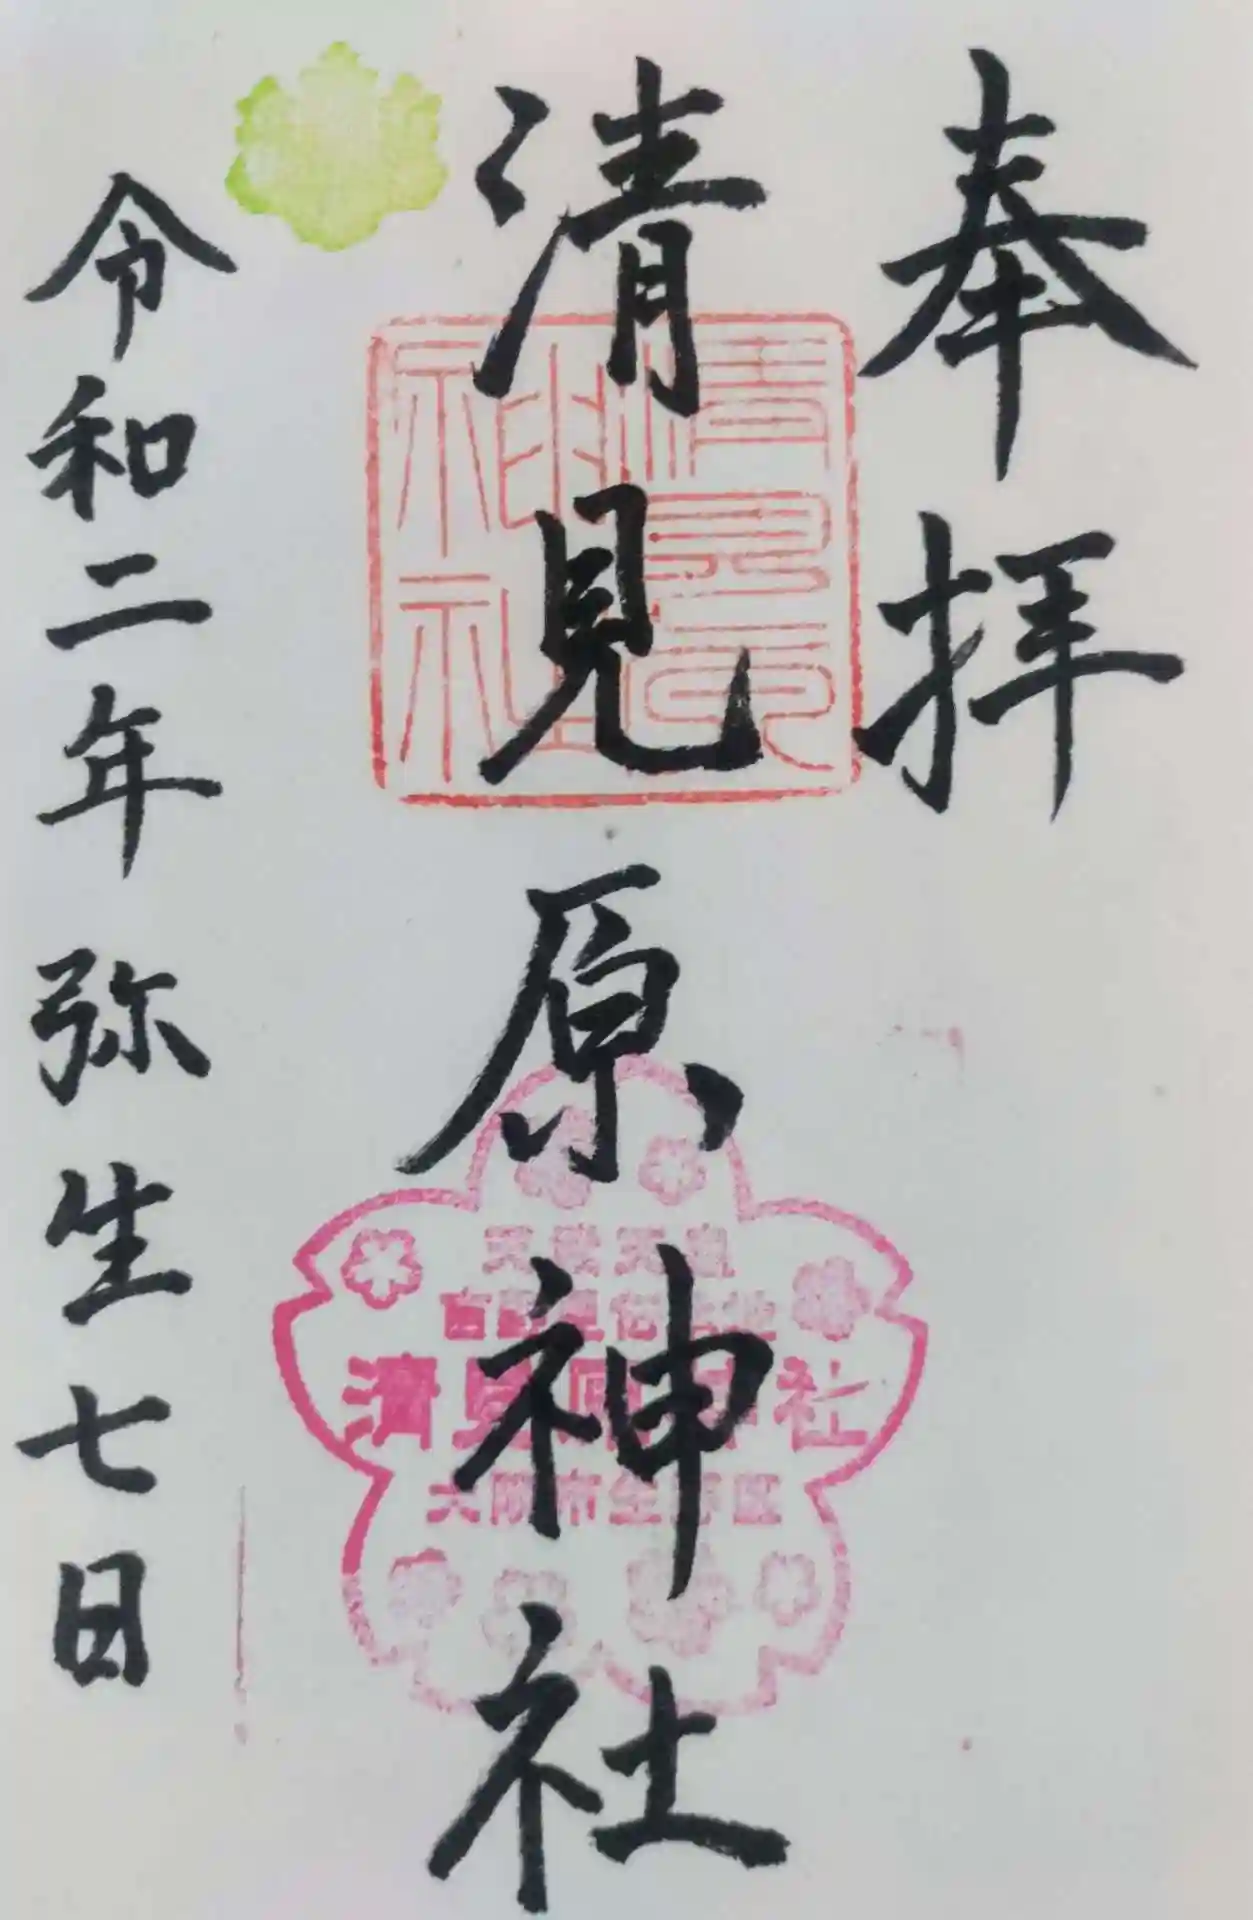 奉拝
清見原神社
清見原神社
清見原神社
大阪市生野区
令和二年弥生七日